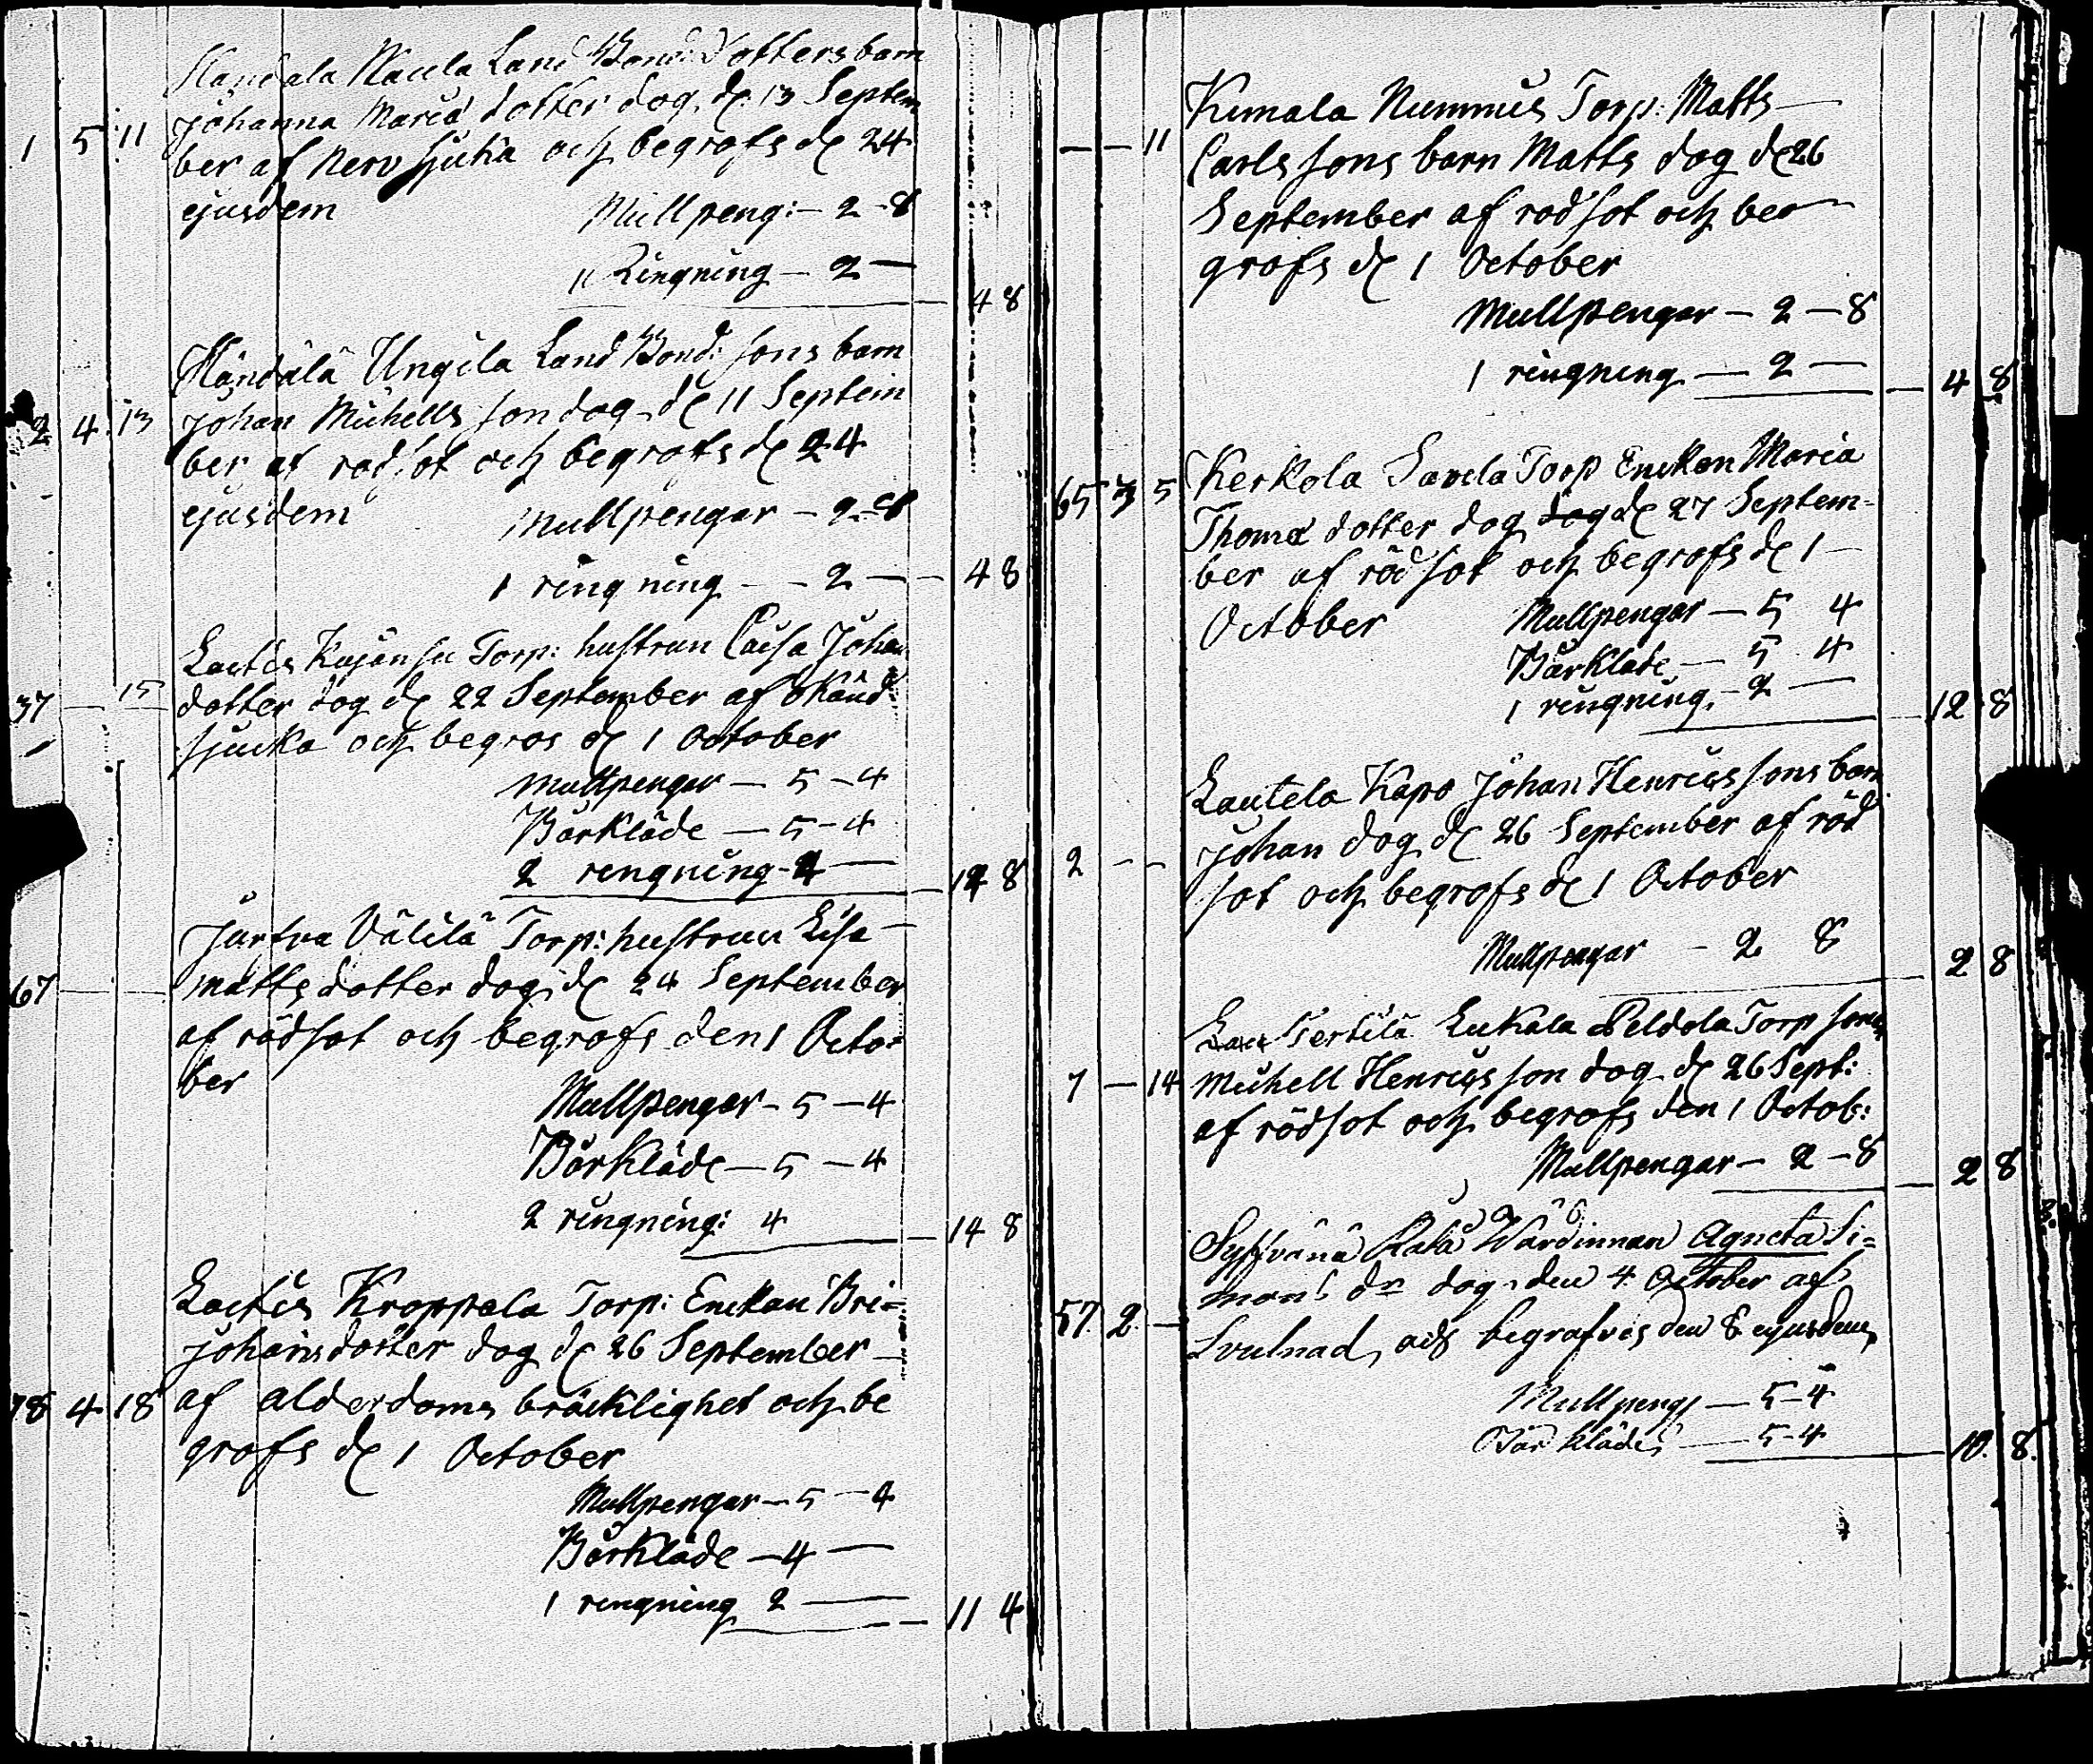 Handala Naula Land Bond: dotters barn
Johanna Maria dotter dog de 13 Septem
1 5 11 ber af Nerv sjuka och begrofs de 24
ejusdem Mullpeng: — 2 - 8
1 Ringning — 2 —
4 8
Händälä Ungila Land Bond: sons barn
2 4 13 Johan Michells son dog de 11 Septem
ber af rodsot och begrofs de 24
ejusdem Mullpengar — 2 - 8
1 ringning — 2 — 4 8
Lautis Kujansu Torp: hustrun Caisa Johan
37 — 15 dotter dog de 22 September af okänd
sjucka och begros de 1 October
Mullpengar — 5 — 4
Bårkläde — 5 — 4
2 rengning - 4 —
14 8
Jurfva Välilä Torp: hustrun Lisa
67 — — matts dotter dog de 24 September
af rödsot och begrofs den 1 Octo=
ber
Mullpengar — 5 — 4
Bårkläde — 5 — 4
2 ringning: 4
14 8
Lautis Kroppola Torp: Enckan Bri=
Johansdotter dog de 26 September
78 4 18 af alderdoms bräcklighet och be
grofs de 1 October
Mullpengar — 5 — 4
Bårkläde — 4 —
1 rengning 2 —
11 4
Kumala Nummus Torp: Matts
— — 11 Carlssons barn Matts dog de 26
September af rodsot och be
grofs de 1 October
Mullpengar — 2 — 8
1 ringning — 2 — 4 8
Kerkola Savela Torp Enckan Maria
65 3 5 Thomæ dotter dog dog de 27 Septem-
ber af rödsot och begrofs de 1
October Mullpengar — 5 4
Bårkläde — 5 4
1 ringning — 2 —
12 8
Lautela Kapo Johan Henricssons barn
2 — — Johan dog de 26 September af röd
sot och begrofs de 1 October
Mullpengar — 2 8
2 8
Lau Perhilä Lukala Peldola Torp sons
7 — 14 Michell Henricsson dog de 26 Sept:
af rödsot och begrofs den 1 Octob:
Mullpengar — 2 — 8 2 8
Syfvänä Wärdinnan Agneta Si=
57 2 — mons dr dog den 4 October af
Svulnad, och begrafves den 8 ejusdem
Mullpeng — 5 — 4
Bår kläde — 5 — 4
10. 8.